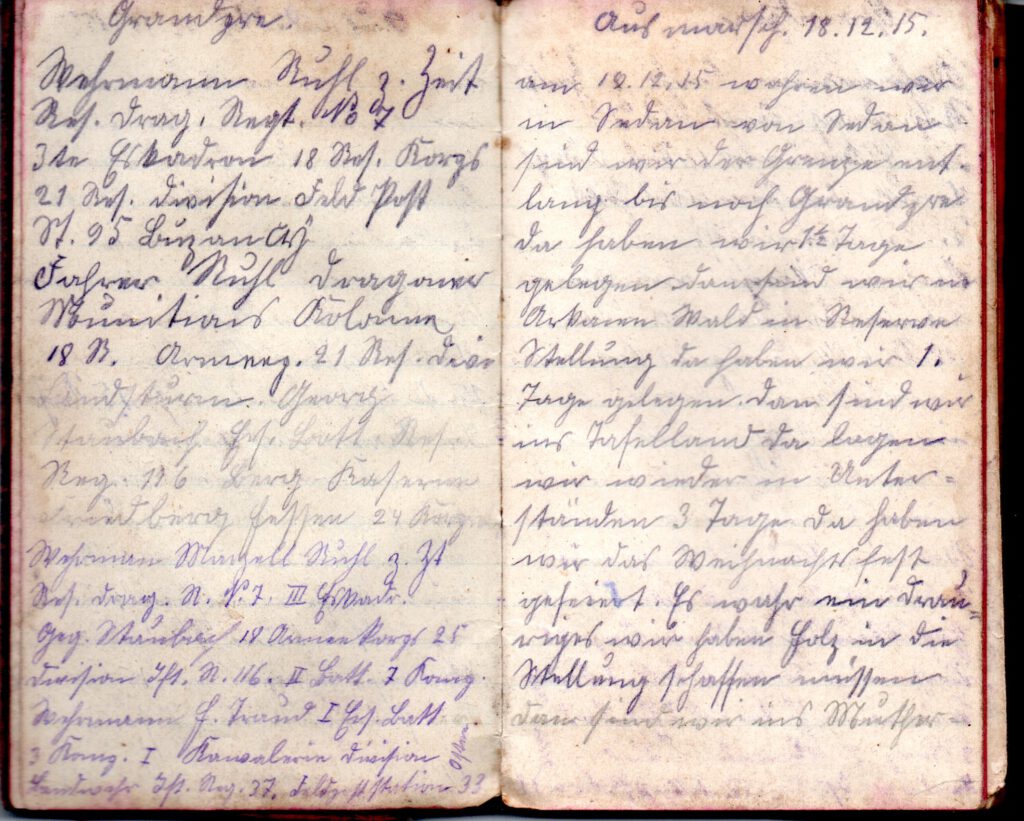 Grandpre.
Wehrmann Ruhl z. Zeit
Res. Drag. Regt. No 7
3te Eskadron 18 Res. Korps
21 Res. Division Feld Post
St. 95 Buzancy
Fahrer Ruhl Dragoner
Munitions Kolonne
18 R. Armeeg. 21 Res. Divi
Landsturm. Georg
Staubach Ers. Batt. Res.
Reg. 116 Berg Kaserne
Friedberg Hessen 24 Korps
Wehrman Marzell Ruhl z. Zt
Res. Drag. R. N. 7. III Eskadr.
Geg. Staubach 18 Armeekorps 25
Division Ift. R. 116. II Batt. 7 Komp.
Wehrmann H. Traud I Ers. Batt
3 Komp. I Kawalerie Division
Landwehr Ift. Reg. 37. Feldpoststation 33
Ausmarsch. 18.12.15.
am 18.12.15 wahren wir
in Sedan von Sedan
sind wir der Grenze ent-
lang bis nach Grandpre
da haben wir 1½ Tage
gelegen dan sind wir in
Wald in Reserve
Stellung da haben wir 1.
Tage gelegen. dan sind wir
ins Tafelland da lagen
wir wieder in Unter-
ständen 3 Tage da haben
wir das Weihnachtsfest
gefeiert. Es wahr ein drau-
riges wir haben Holz in die
Stellung schaffen müssen
dan sind wir ins Muther-